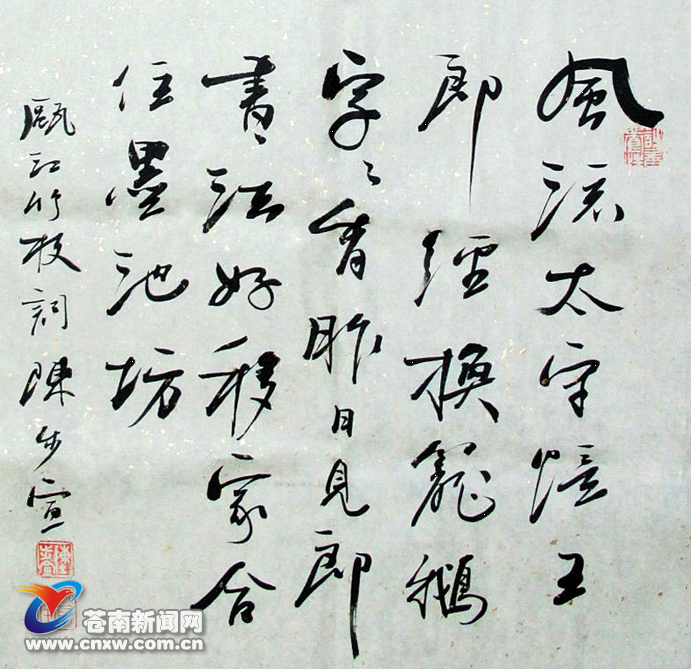 風流太守憶王
郎經換籠鵝
字々香昨日見郎
書法好移家合
住墨池坊
甌江竹枝詞陳步宣
苍南新闻网
www.cnxw.com.cn